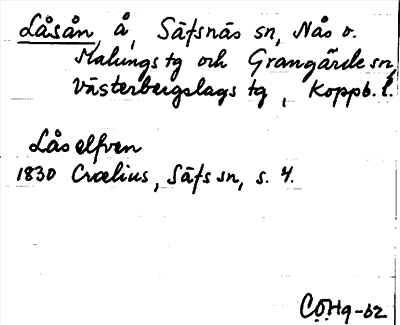 Låsån, å, Säfsnäs sn, Nås o.
Malungs tg och Grangärde sn,
Västerbergslags tg, Koppb. l.
Låselfven
1830 Crælius, Säfs sn, s. 4.
COHg-62